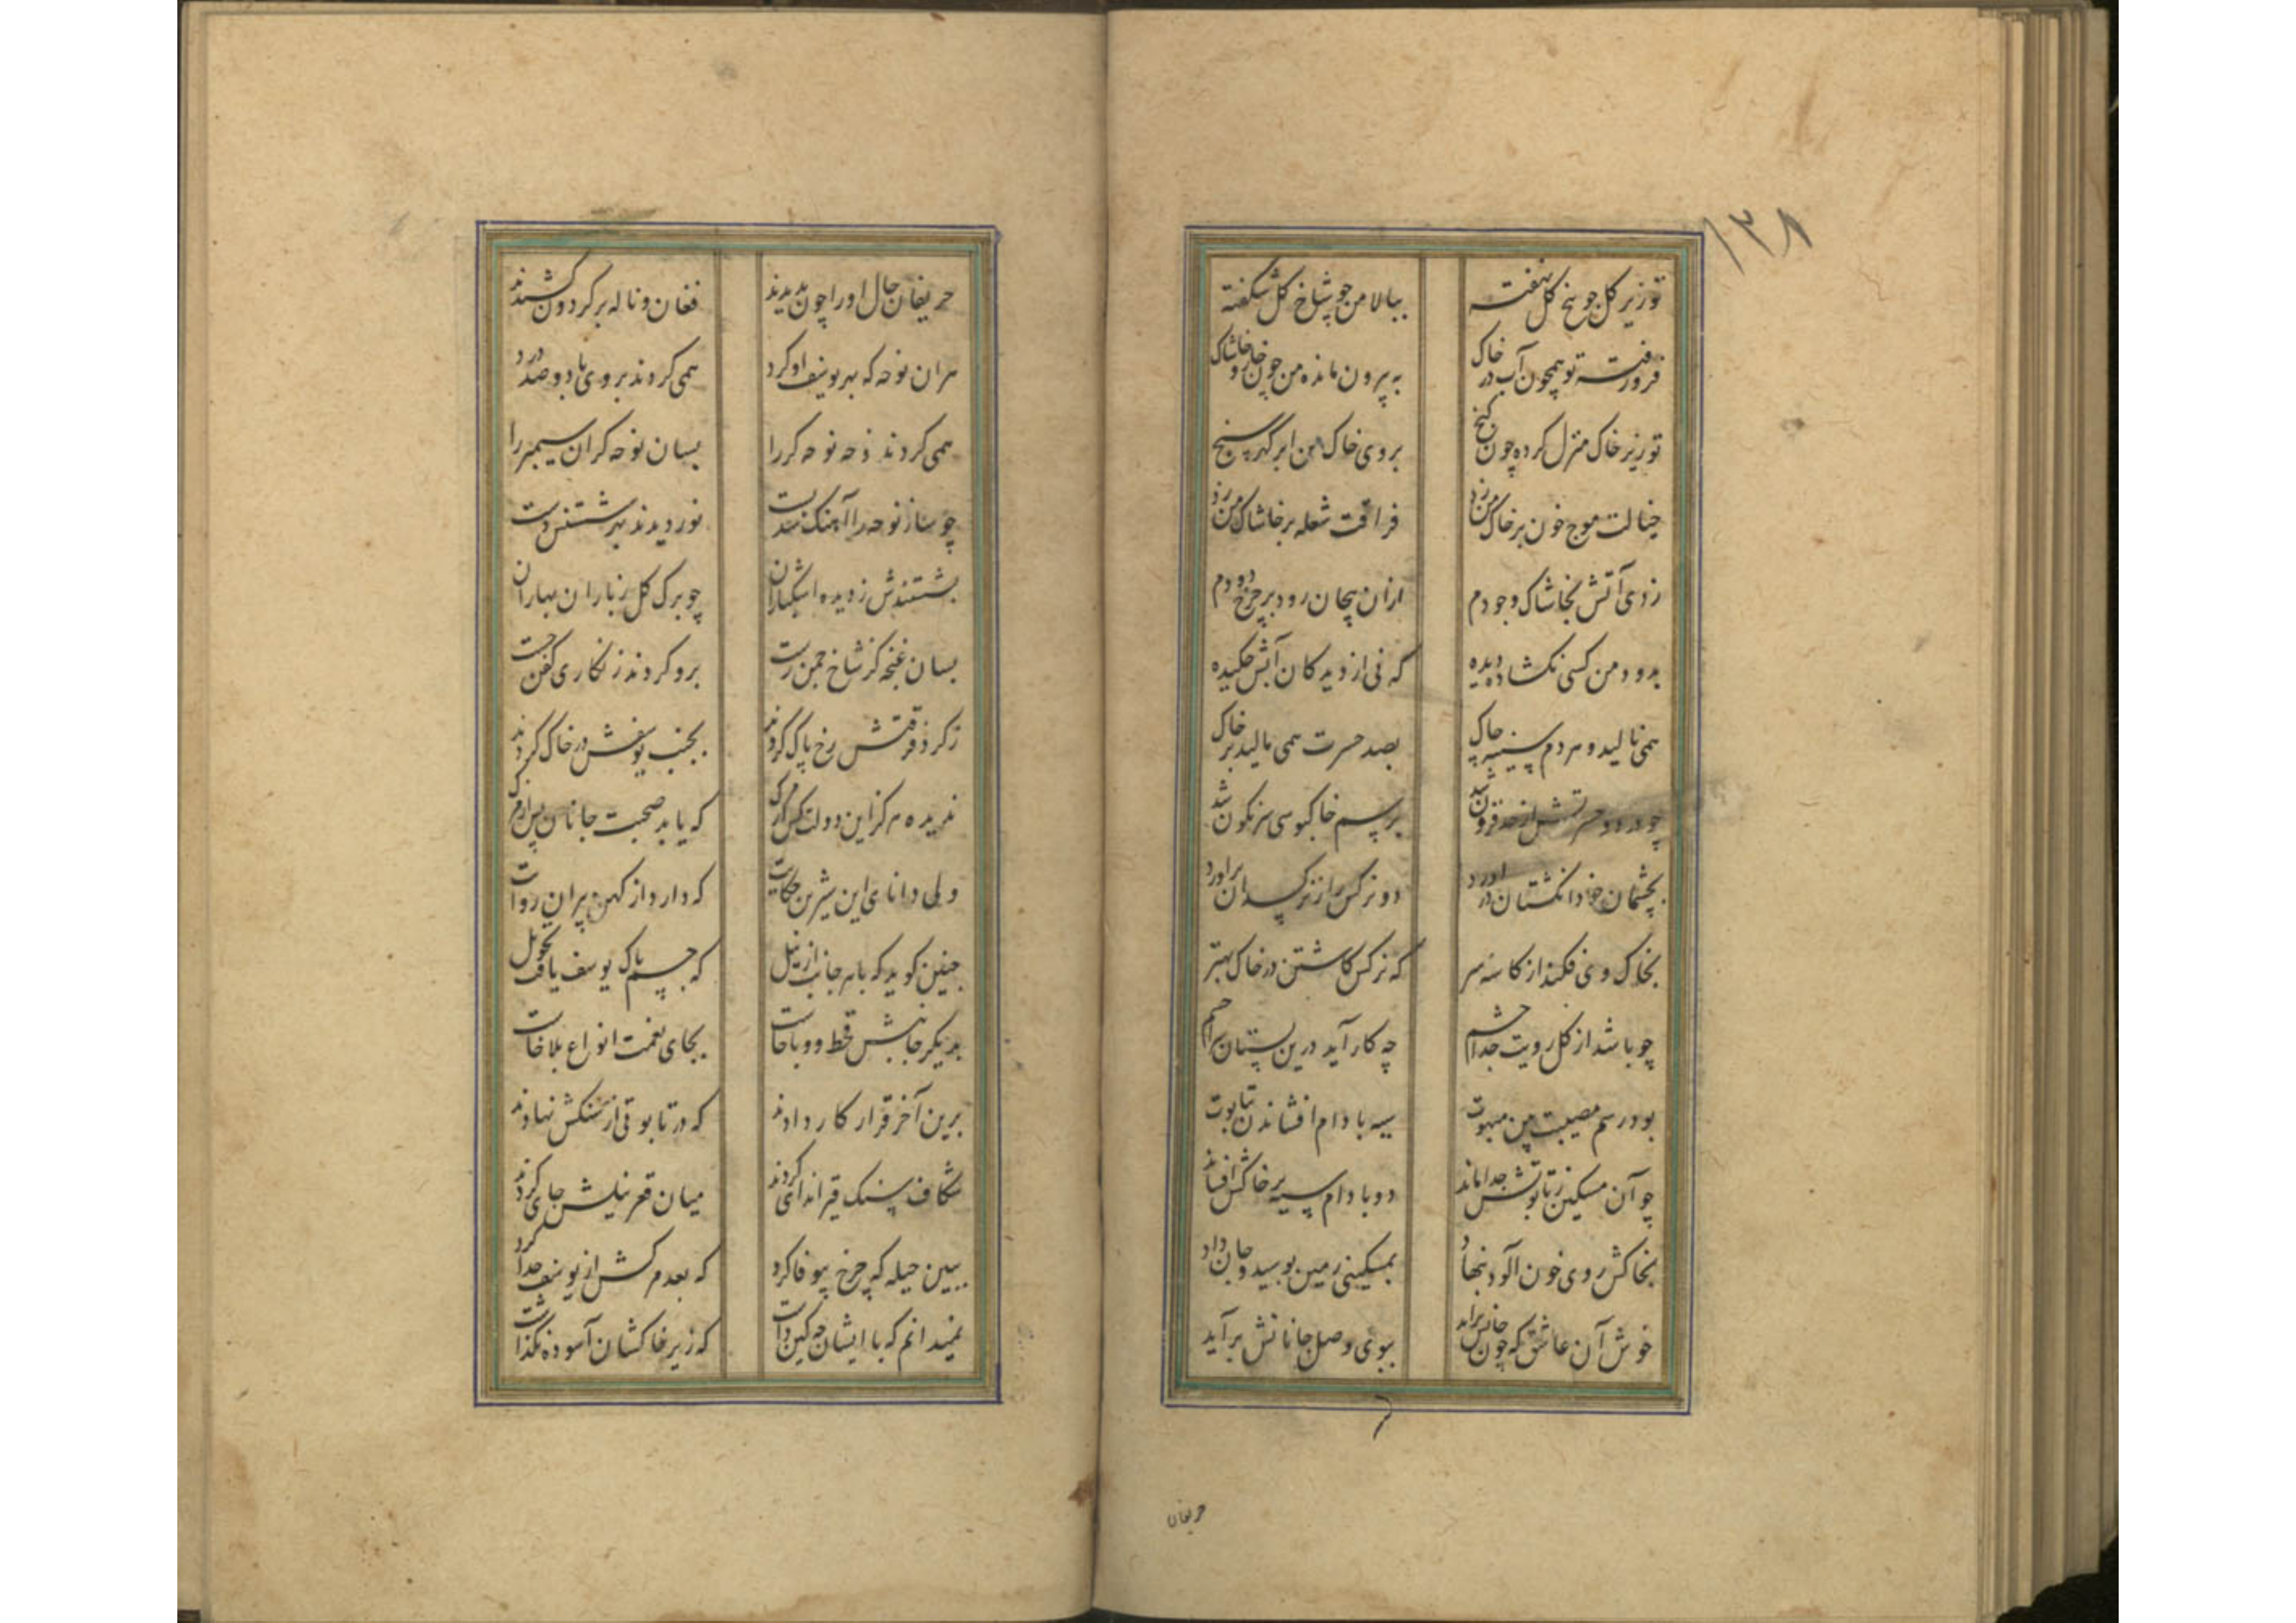 ۱۳۸
تو زیر کل جو بیخ کل نهفته ببالا من جو شاخ کل شکفته
فرو رفته تو همچون آب در خاک به بیرون مانده من چون خار و خاشاک
تو زیر خاک منزل کرده چون کنج بروی خاک من ابر گهر سنج
خیالت موج خون بر خاک من زد فراقت شعله بر خاشاک من زد
زدی آتش بخاشاک وجودم ازان پیچان رود بر چرخ دودم
بدود من کسی نکشاده دیده که نی از دیدکان آبش چکیده
همی نالید و هردم سینه چاک بصد حسرت همی مالید بر خاک
چو درد و حسرتش از حد فزون شد برسم خاکبوسی سرنکون شد
بچشمان خود انکشتان در آورد دو نرکس را ز نرکسدان بر آورد
بخاک وی فکند از کاسه سر که نرکس کاشتن در خاک بهتر
چو باشد از کل رویت جدا چشم چه کار آید درین بستان مرا چشم
بود رسم مصیبت بین مبهوت سیه بادام افشاندن بتابوت
چو آن مسکین ز تابوتش جدا ماند دو بادام سیه بر خاکش افشاند
بخاکش روی خون آلود بنهاد بمسکینی زمین بوسید و جان داد
خوش آن عاشق که چون جانش برآید ببوی وصل جانانش برآید
حریفان
حریفان حال او را چون بدیدند فغان و ناله بر کردون کشیدند
هران نوحه که بهر یوسف او کرد همی کردند بر وی با دو صد درد
همی کردند نوحه نوحه کر را بسان نوحه کران سیمبر را
چو ساز نوحه را آهنک شد پست نوردیدند بهر شستنش دست
بشستندش ز دیده اشکباران چو برک کل ز باران بهاران
بسان غنچه کز شاخ چمن رست برو کردند زنکاری کفن چست
ز کرد فرقتش رخ پاک کردند بجنب یوسفش در خاک کردند
ندیده هرکز این دولت کس از مرک که یابد صحبت جانان پس از مرک
ولی دانای این شیرین حکایت که دارد از کهن پیران روایت
چنین کوید که با هر جانب از نیل که جسم پاک یوسف یافت تحویل
بدیکر جانبش قحط و وبا خاست بجای نعمت انواع بلا خاست
برین آخر قرار کار دادند که در تابوتی از سنکش نهادند
شکاف سنک قیر اندای کردند میان قعر نیلش جای کردند
ببین حیله که چرخ بیوفا کرد که بعد مرکش از یوسف جدا کرد
نمیدانم که با ایشان چه کین داشت که زیر خاکشان آسوده نکذاشت